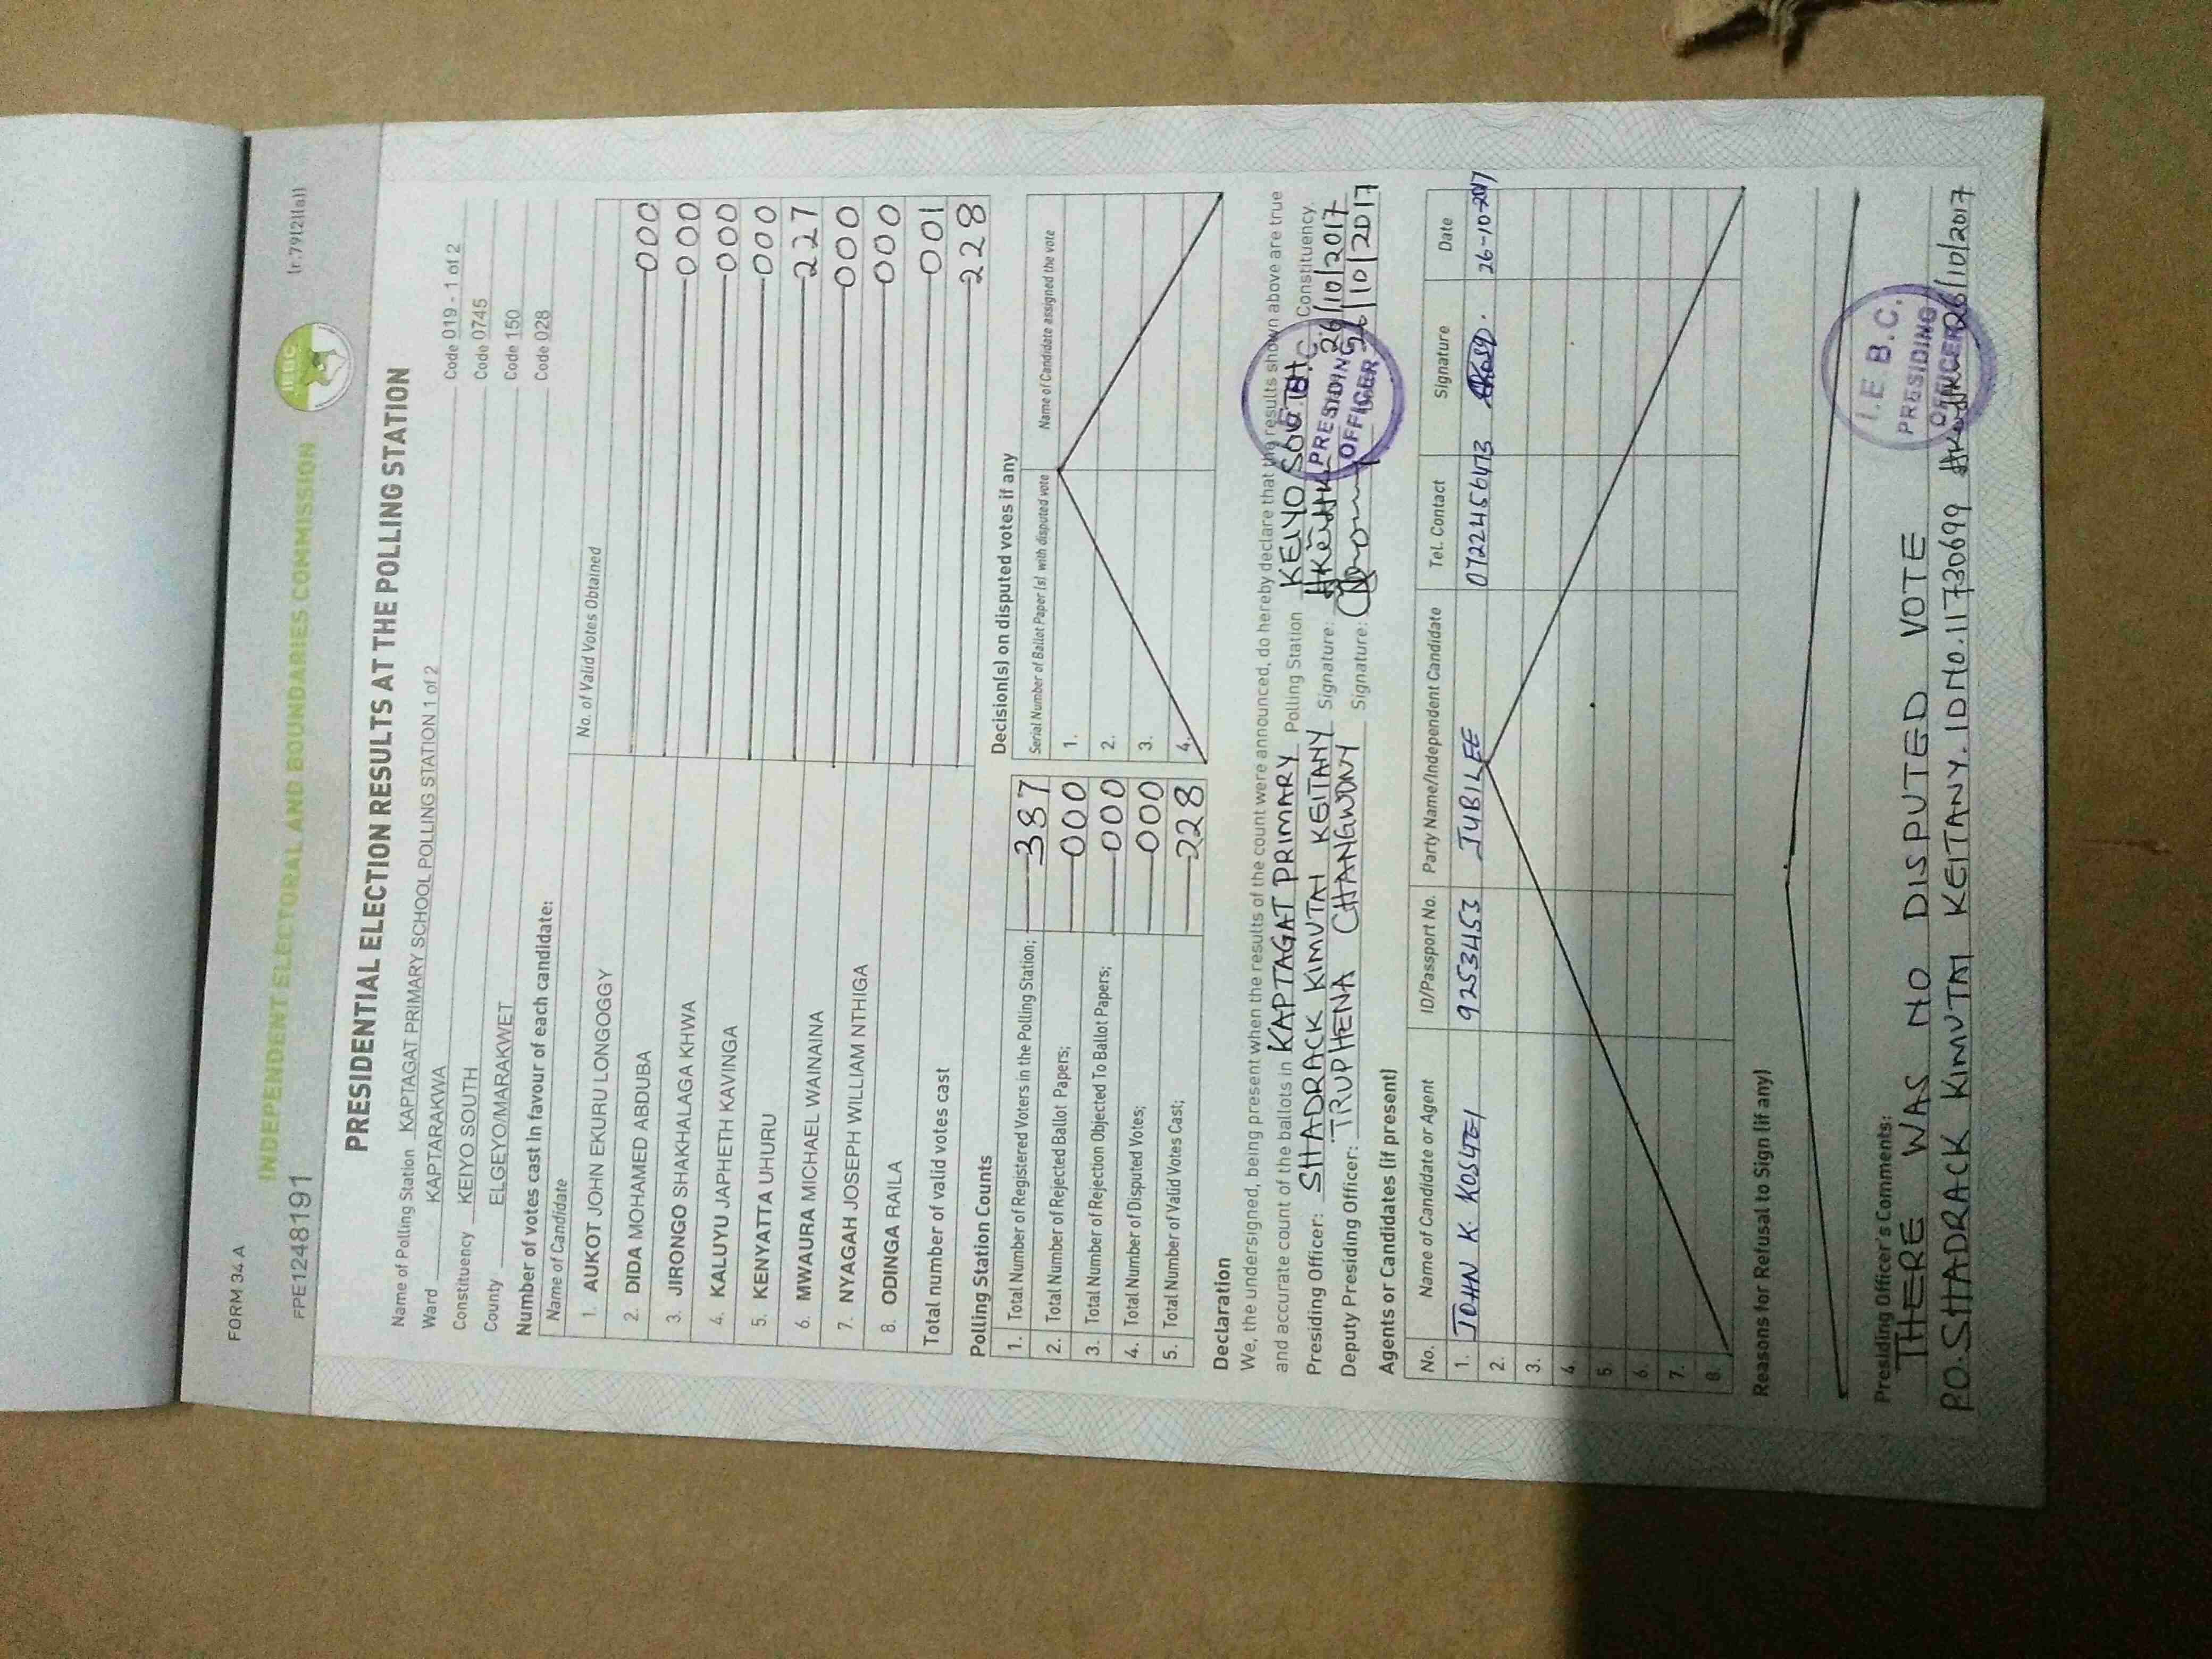 FORM 34 A
FPE1248191
INDEPENDENT ELECTORAL AND BOUNDARIES COMMISSION
IEBC
(r.79(2)(a))
PRESIDENTIAL ELECTION RESULTS AT THE POLLING STATION
Name of Polling Station KAPTAGAT PRIMARY SCHOOL POLLING STATION 1 of 2 Code 019 - 1 of 2
Ward KAPTARAKWA Code 0745
Constituency KEIYO SOUTH Code 150
County ELGEYO/MARAKWET Code 028
Number of votes cast In favour of each candidate:
Name of Candidate No. of Valid Votes Obtained
1. AUKOT JOHN EKURU LONGOGGY 000
2. DIDA MOHAMED ABDUBA 000
3. JIRONGO SHAKHALAGA KHWA 000
4. KALUYU JAPHETH KAVINGA 000
5. KENYATTA UHURU 227
6. MWAURA MICHAEL WAINAINA 000
7. NYAGAH JOSEPH WILLIAM NTHIGA 000
8. ODINGA RAILA 001
Total number of valid votes cast 228
Polling Station Counts
1. Total Number of Registered Voters in the Polling Station; 387
2. Total Number of Rejected Ballot Papers; 000
3. Total Number of Rejection Objected To Ballot Papers; 000
4. Total Number of Disputed Votes; 000
5. Total Number of Valid Votes Cast; 228
Decision(s) on disputed votes if any
Serial Number of Ballot Paper(s) with disputed vote Name of Candidate assigned the vote
1.
2.
3.
4.
Declaration
We, the undersigned, being present when the results of the count were announced, do hereby declare that the results shown above are true
and accurate count of the ballots in KAPTAGAT PRIMARY Polling Station KEIYO SOUTH Constituency.
Presiding Officer: SHADRACK KIMUTAI KEITANY Signature: 26/10/2017
Deputy Presiding Officer: TRUPHENA CHANGWONY Signature: 26/10/2017
PRESIDING OFFICER
Agents or Candidates (if present)
No. Name of Candidate or Agent ID/Passport No. Party Name/Independent Candidate Tel. Contact Signature Date
1. JOHN K. KOSGEI 9253453 JUBILEE 0722456473 26-10-2017
2.
3.
4
5
6.
7.
8.
Reasons for Refusal to Sign (if any)
Presiding Officer's Comments:
THERE WAS NO DISPUTED VOTE
P.O. SHADRACK KIMUTAI KEITANY. ID NO. 11730699 26/10/2017
I.E B.C.
PRESIDING
OFFICER